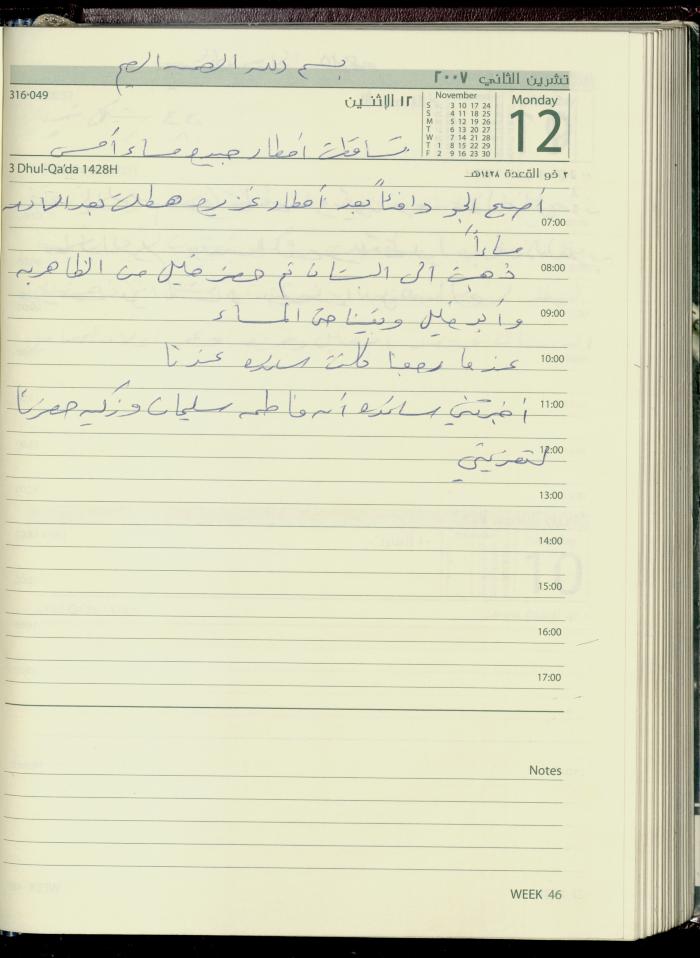 بسم الله الرحمن الرحيم
تشرين الثاني ٢٠٠٧
316-049
١٢ الاثنين
November
S 3 10 17 24
S 4 11 18 25
M 5 12 19 26
T 6 13 20 27
W 7 14 21 28
T 1 8 15 22 29
F 2 9 16 23 30
Monday
12
تساقطت أمطار جيدة مساء أمس
3 Dhul-Qa'da 1428H
٣ ذو القعدة ١٤٢٨هـ
أصبح الجو دافئاً بعد أمطار غزيرة هطلت بعد
07:00
مساءاً
ذهبت الى البستان ثم حضر خليل من الظاهرية
08:00
وأبو خليل وبقينا حتى المساء
09:00
عندما رجعنا كانت عندنا
10:00
أخبرتني ساجدة أن فاطمة سليمان وزكية حضرتا
11:00
لتعزيتي
12:00
13:00
14:00
15:00
16:00
17:00
Notes
WEEK 46